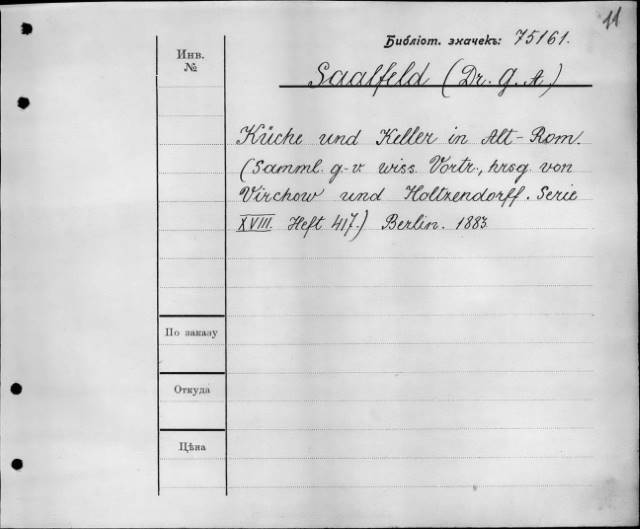 11
Библіот. значекъ: 75161.
Инв.
№
Saalfeld (Dr. G. A.)
Küche und Keller in Alt-Rom.
(Samml. g.-v. wiss. Vortr., hrsg. von
Virchow und Holtzendorff. Serie
XVIII. Heft 417.) Berlin. 1883.
По заказу
Откуда
Цѣна